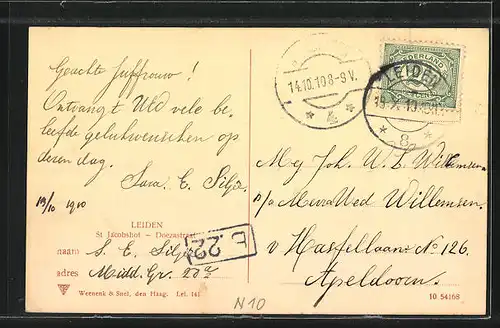 Geachte Juffrouw!
Ontvangt UEd vele be-
leefde gelukwenschen op
dezen dag.
Sara E. Silje
13/10 1910
LEIDEN
St Jacobshof — Doezastraat
naam S. E. Silje
adres Midd. Gr.
Weenenk & Snel, den Haag. Lei. 141
N10
14.10.10 8-9 V.
4
NEDERLAND
LEIDEN
8
Mej Joh. W. L. Willemsen
p/a Mevr Wed Willemsen.
v Hasseltlaan No 126.
Apeldoorn.
10 54168